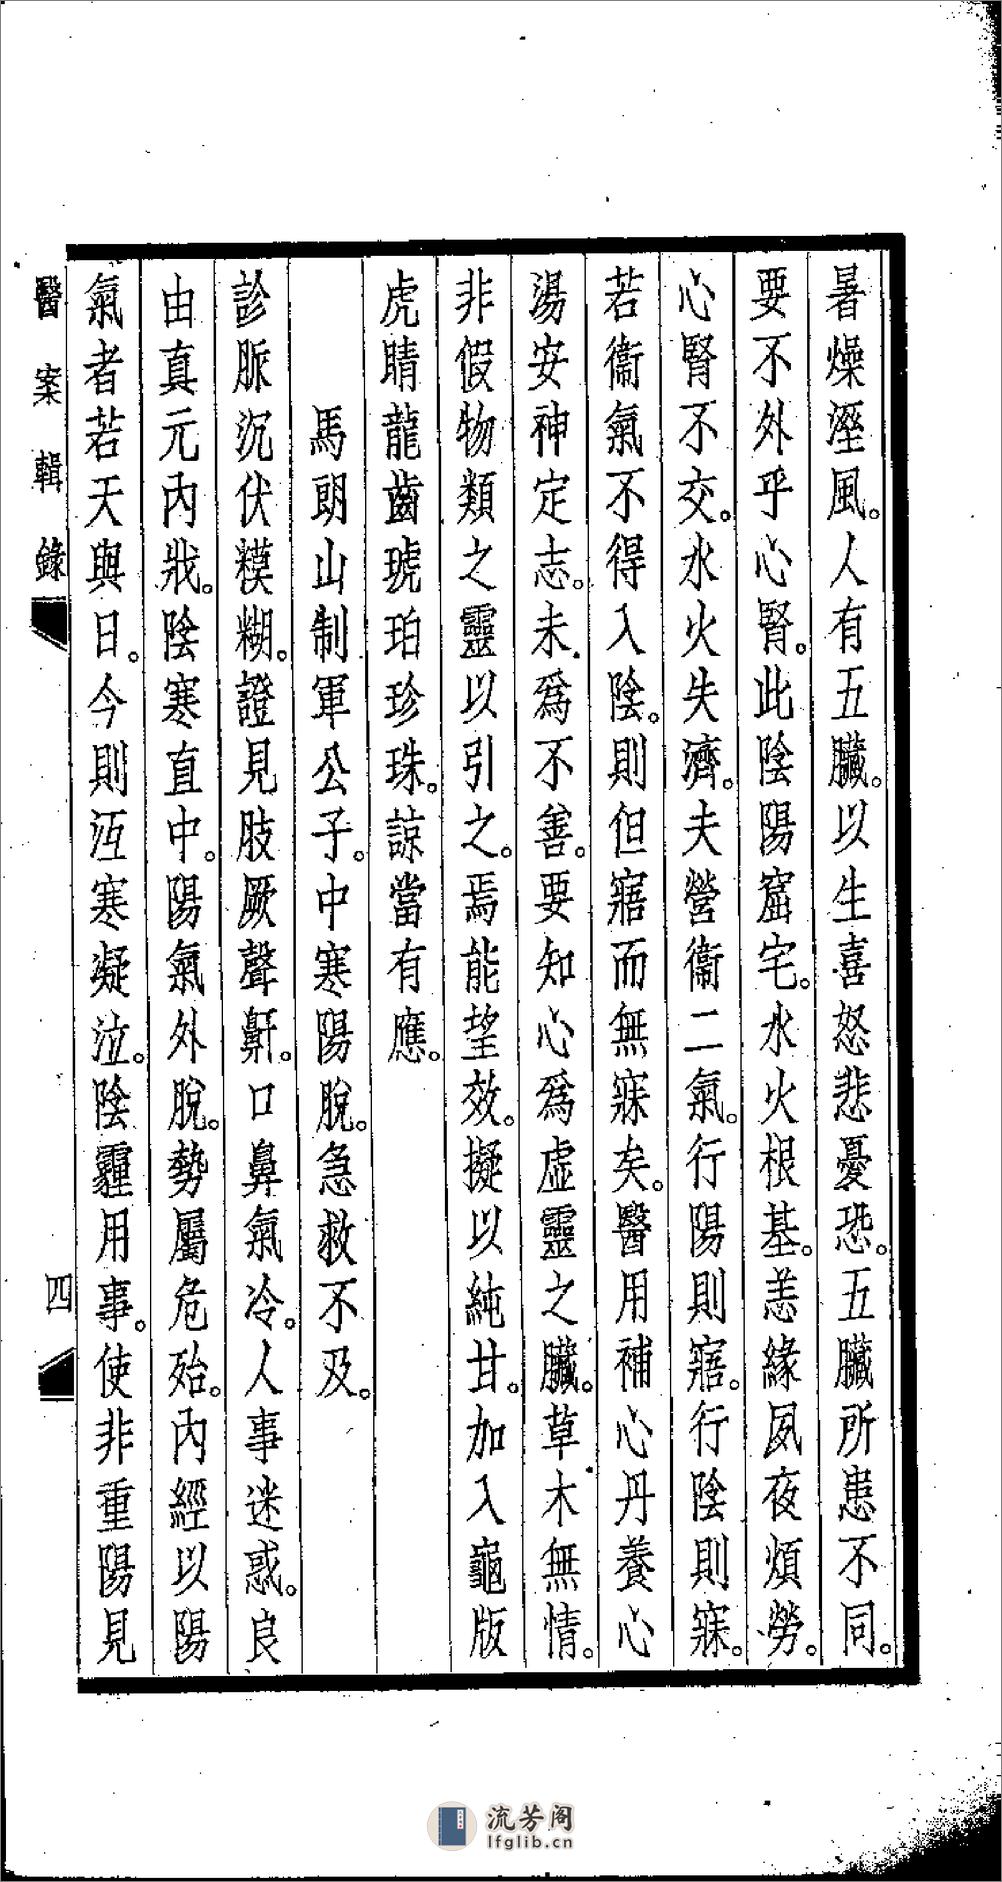 暑燥溼風。人有五臟。以生喜怒悲憂恐。五臟所患不同。
要不外乎心腎。此陰陽窟宅。水火根基。恙緣夙夜煩勞。
心腎不交。水火失濟。夫營衞二氣。行陽則寤。行陰則寐。
若衞氣不得入陰。則但寤而無寐矣。醫用補心丹養心
湯安神定志。未爲不善。要知心爲虛靈之臟。草木無情。
非假物類之靈以引之。焉能望效。擬以純甘。加入龜版
虎睛龍齒琥珀珍珠。諒當有應。
馬朗山制軍公子。中寒陽脫。急救不及。
診脈沉伏模糊。證見肢厥聲鼾。口鼻氣冷。人事迷惑。良
由真元內戕。陰寒直中。陽氣外脫。勢屬危殆。內經以陽
氣者若天與日。今則沍寒凝泣。陰霾用事。使非重陽見
醫案輯錄
四
流芳阁
lfglib.cn